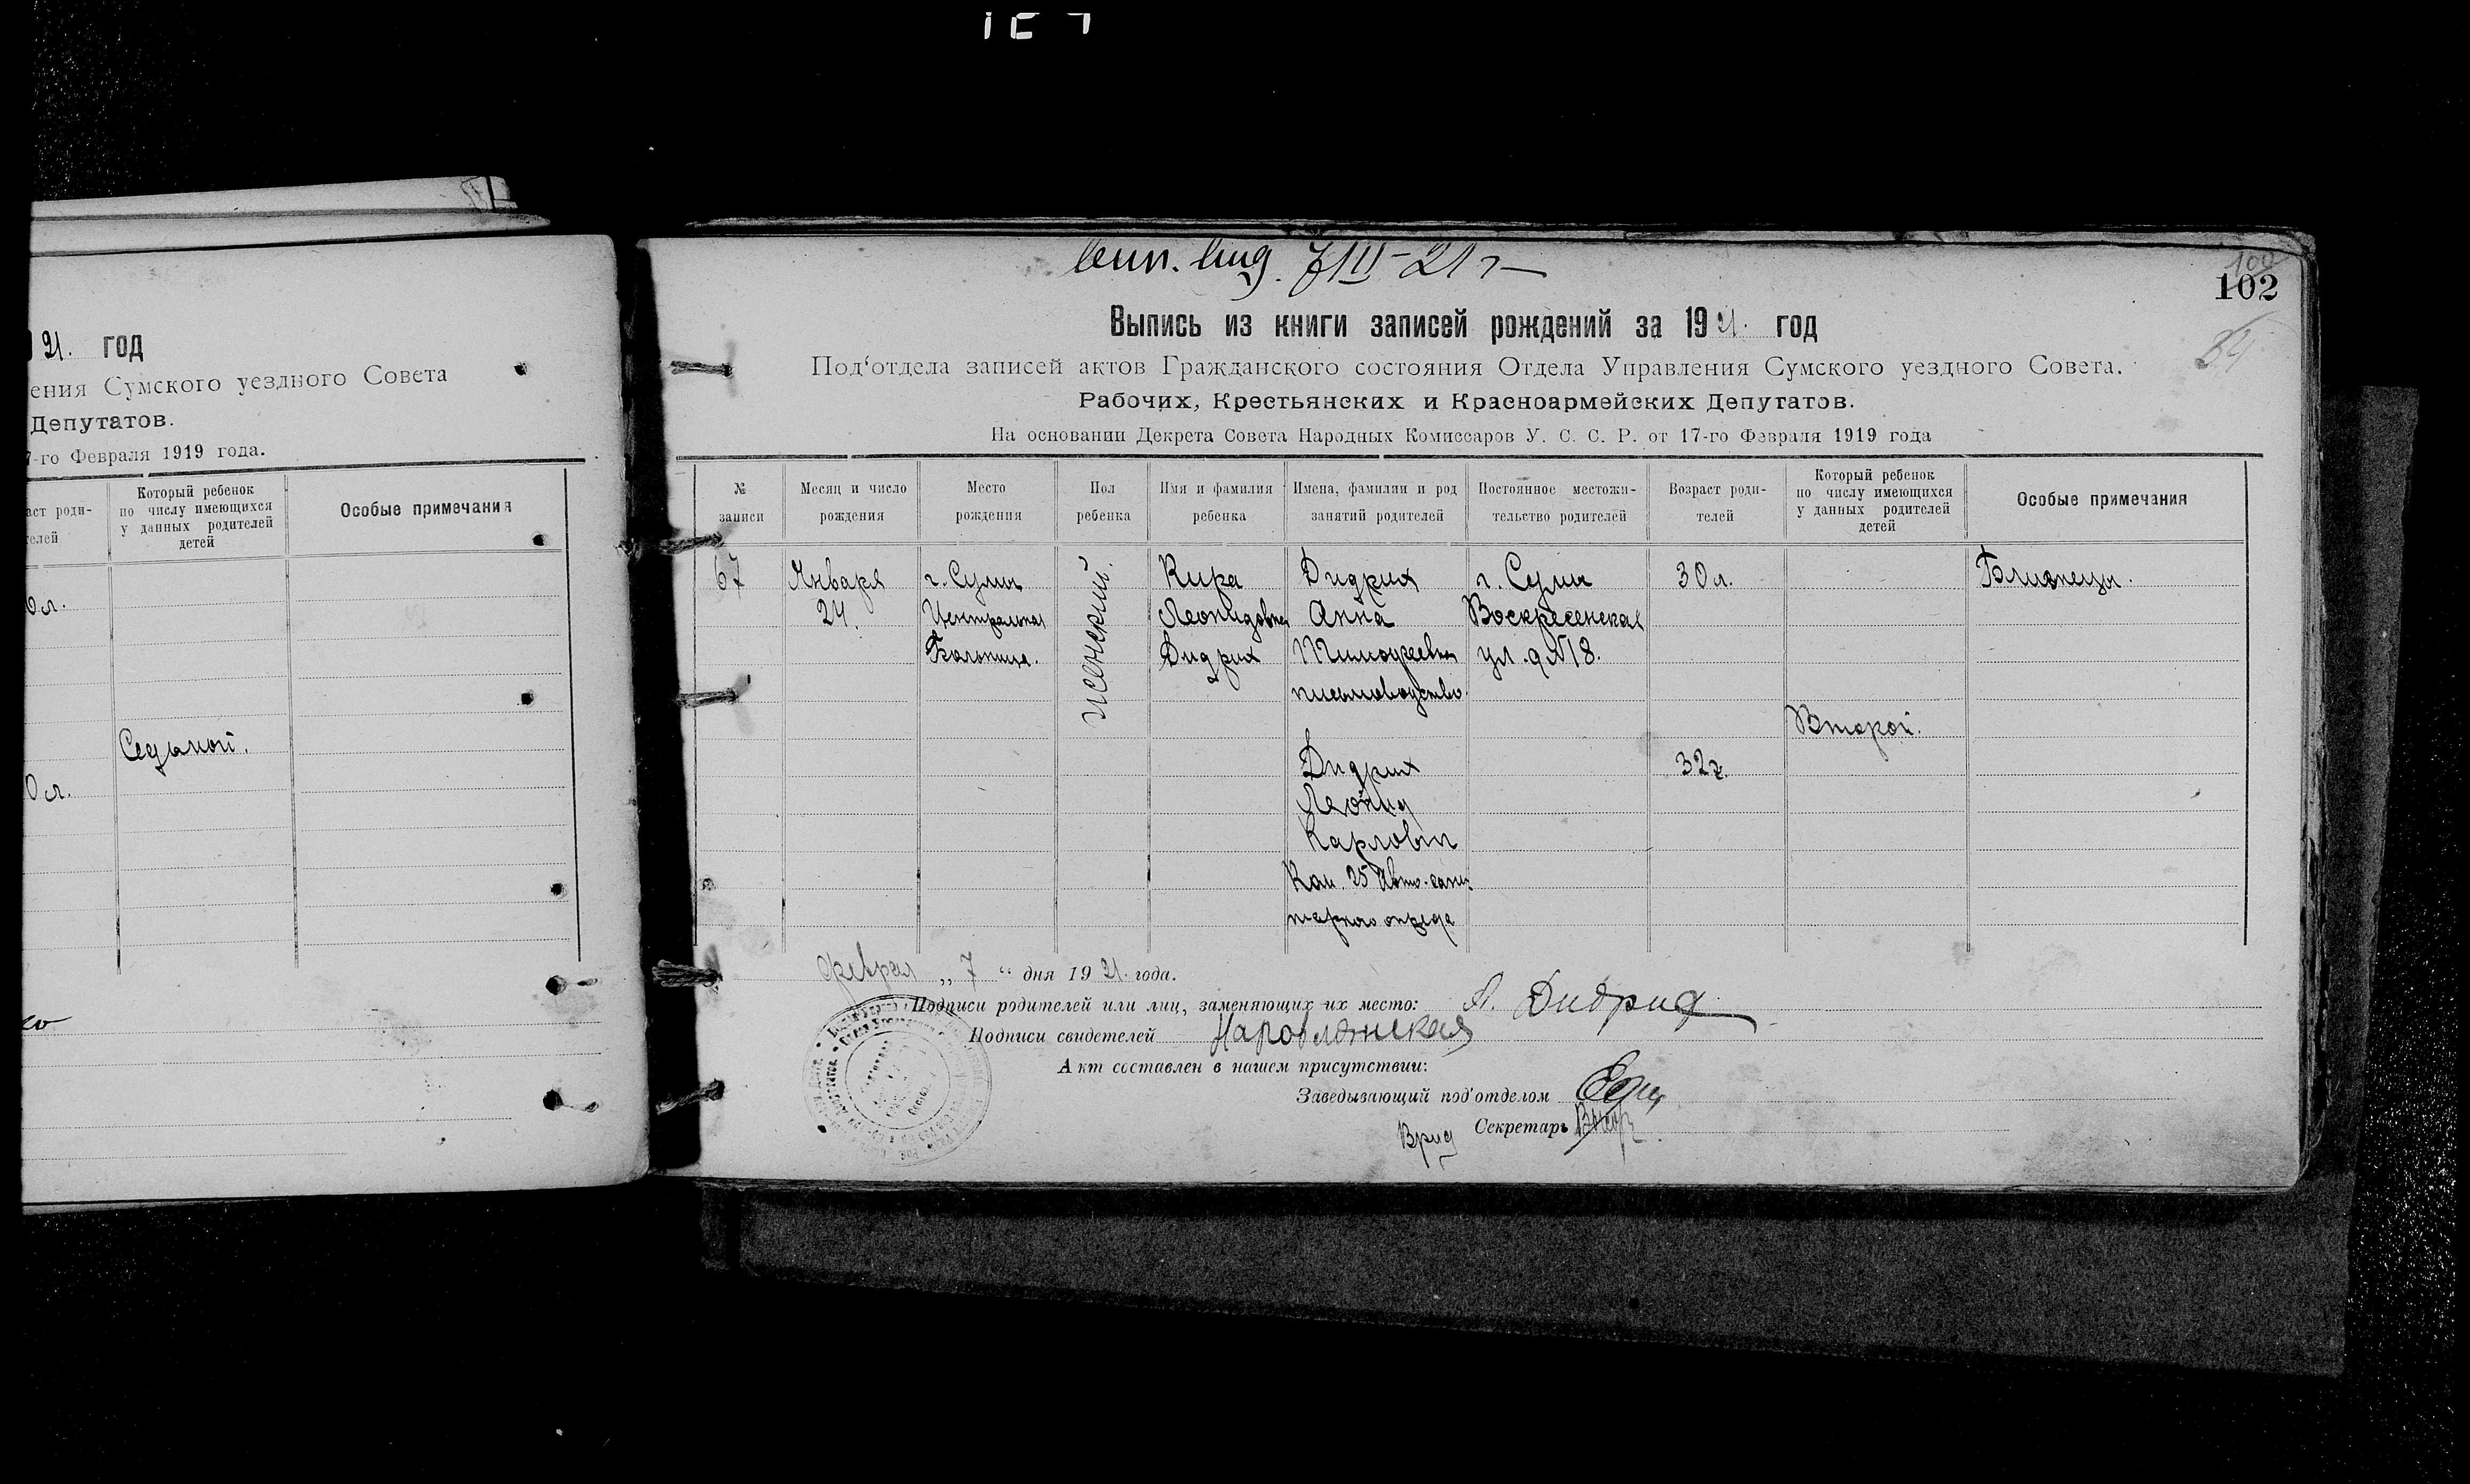 21. год
ения Сумского уездного Совета
Депутатов.
7-го Февраля 1919 года.
Который ребенок
по числу имеющихся
у данных родителей
детей
Особые примечания
аст роди-
телей
Седьмой.
0 л.
7 III-21 г
100
102
Выпись из книги записей рождений за 1921. год
Под‘отдела записей актов Гражданского состояния Отдела Управления Сумского уездного Совета.
Рабочих, Крестьянских и Красноармейских Депутатов.
На основании Декрета Совета Народных Комиссаров У. С. С. Р. от 17-го Февраля 1919 года
№ записи
Месяц и число рождения
Место рождения
Пол ребенка
Имя и фамилия ребенка
Имена, фамилии и род занятий родителей
Постоянное местожи-тельство родителей
Возраст роди-телей
Который ребенок по числу имеющихся у данных родителей детей
Особые примечания
67 Января г. Сумы женский. Кира Дидрих г. Сумы 30 л. Близнецы.
24. Центральная Леонидовна Анна Воскресенская
Больница. Дидрих Тимофеевна ул. д № 18.
письмоводство.
Второй.
Дидрих 32 г.
Леонид
Карлович
Ком. 25 Авто-сани
тарного отряда
Феврал „ 7 “ дня 1921. года.
Подписи родителей или лиц, заменяющих их место: Л. Дидрих
Подписи свидетелей Наровлянская
Акт составлен в нашем присутствии:
Заведывающий под‘отделом
Врид Секретарь